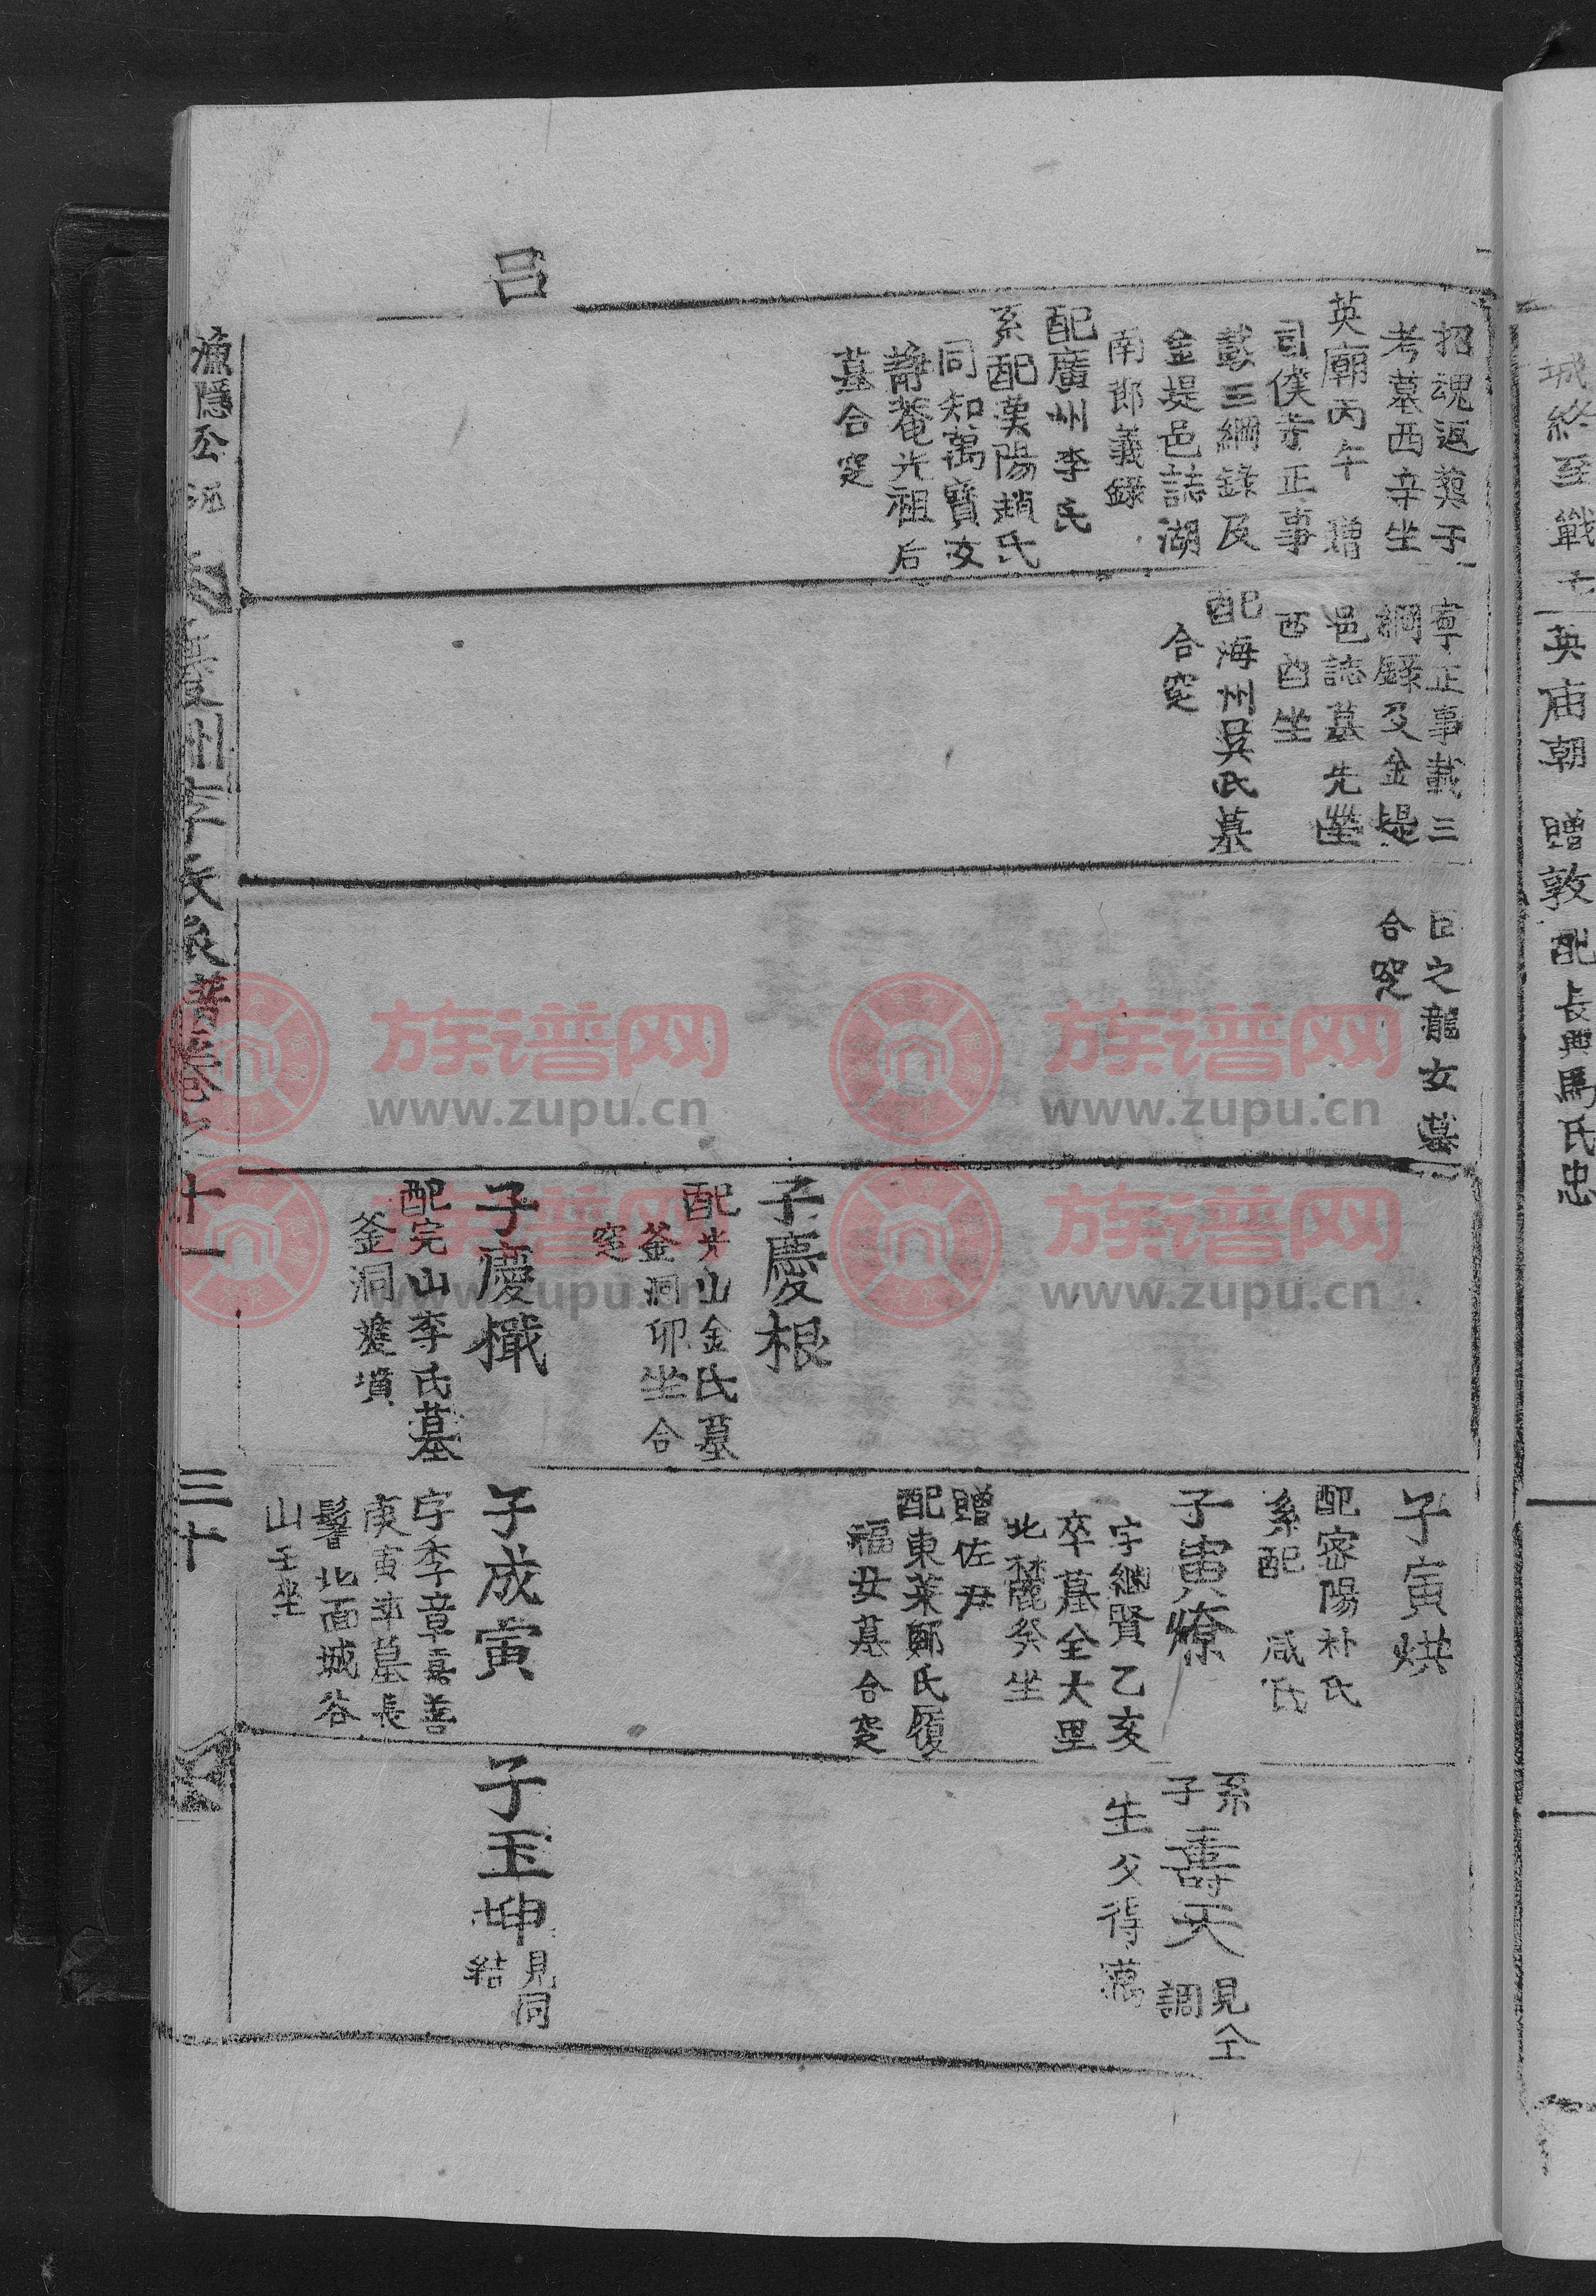 城終至戰亡
英庙朝 贈敦
配長興馬氏忠
呂
招魂返葬于
考墓西辛坐
英廟丙午 贈
司僕寺正事
載三綱錄及
金堤邑誌湖
南郎義錄
配廣州李氏
系配漢陽趙氏
同知萬寶女
靜菴光祖后
墓合窆
寧正事載三
綱錄及金堤
邑誌墓先塋
酉坐
配海州吳氏墓
合窆
臣之龍女墓
合窆
子慶根
配光山金氏墓
釜洞卯坐合
窆
子慶檝
配完山李氏墓
釜洞雙墳
子寅烘
配密陽朴氏
系配 咸氏
子寅燎
字継賢乙亥
卒墓仝大里
北麓癸坐
贈佐尹
配東萊鄭氏履
福女墓合窆
子成寅
字季章嘉善
庚寅卒墓長
北面城谷
山壬坐
系子壽天 見仝調
生父得萬
子玉坤 見同結
漁隱公派
慶州李氏派譜卷之十一
三十
族谱网
www.zupu.cn
族谱网
www.zupu.cn
族谱网
www.zupu.cn
族谱网
www.zupu.cn